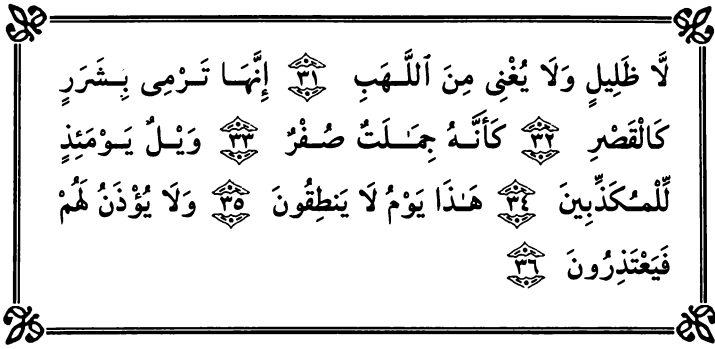 لَّا ظَلِيلٍ وَلَا يُغْنِى مِنَ ٱللَّهَبِ ٣١ إِنَّهَا تَرْمِى بِشَرَرٍ
كَالْقَصْرِ ٣٢ كَأَنَّهُ جِمَـٰلَتٌ صُفْرٌ ٣٣ وَيْلٌ يَوْمَئِذٍ
لِّلْمُكَذِّبِينَ ٣٤ هَـٰذَا يَوْمُ لَا يَنطِقُونَ ٣٥ وَلَا يُؤْذَنُ لَهُمْ
فَيَعْتَذِرُونَ ٣٦